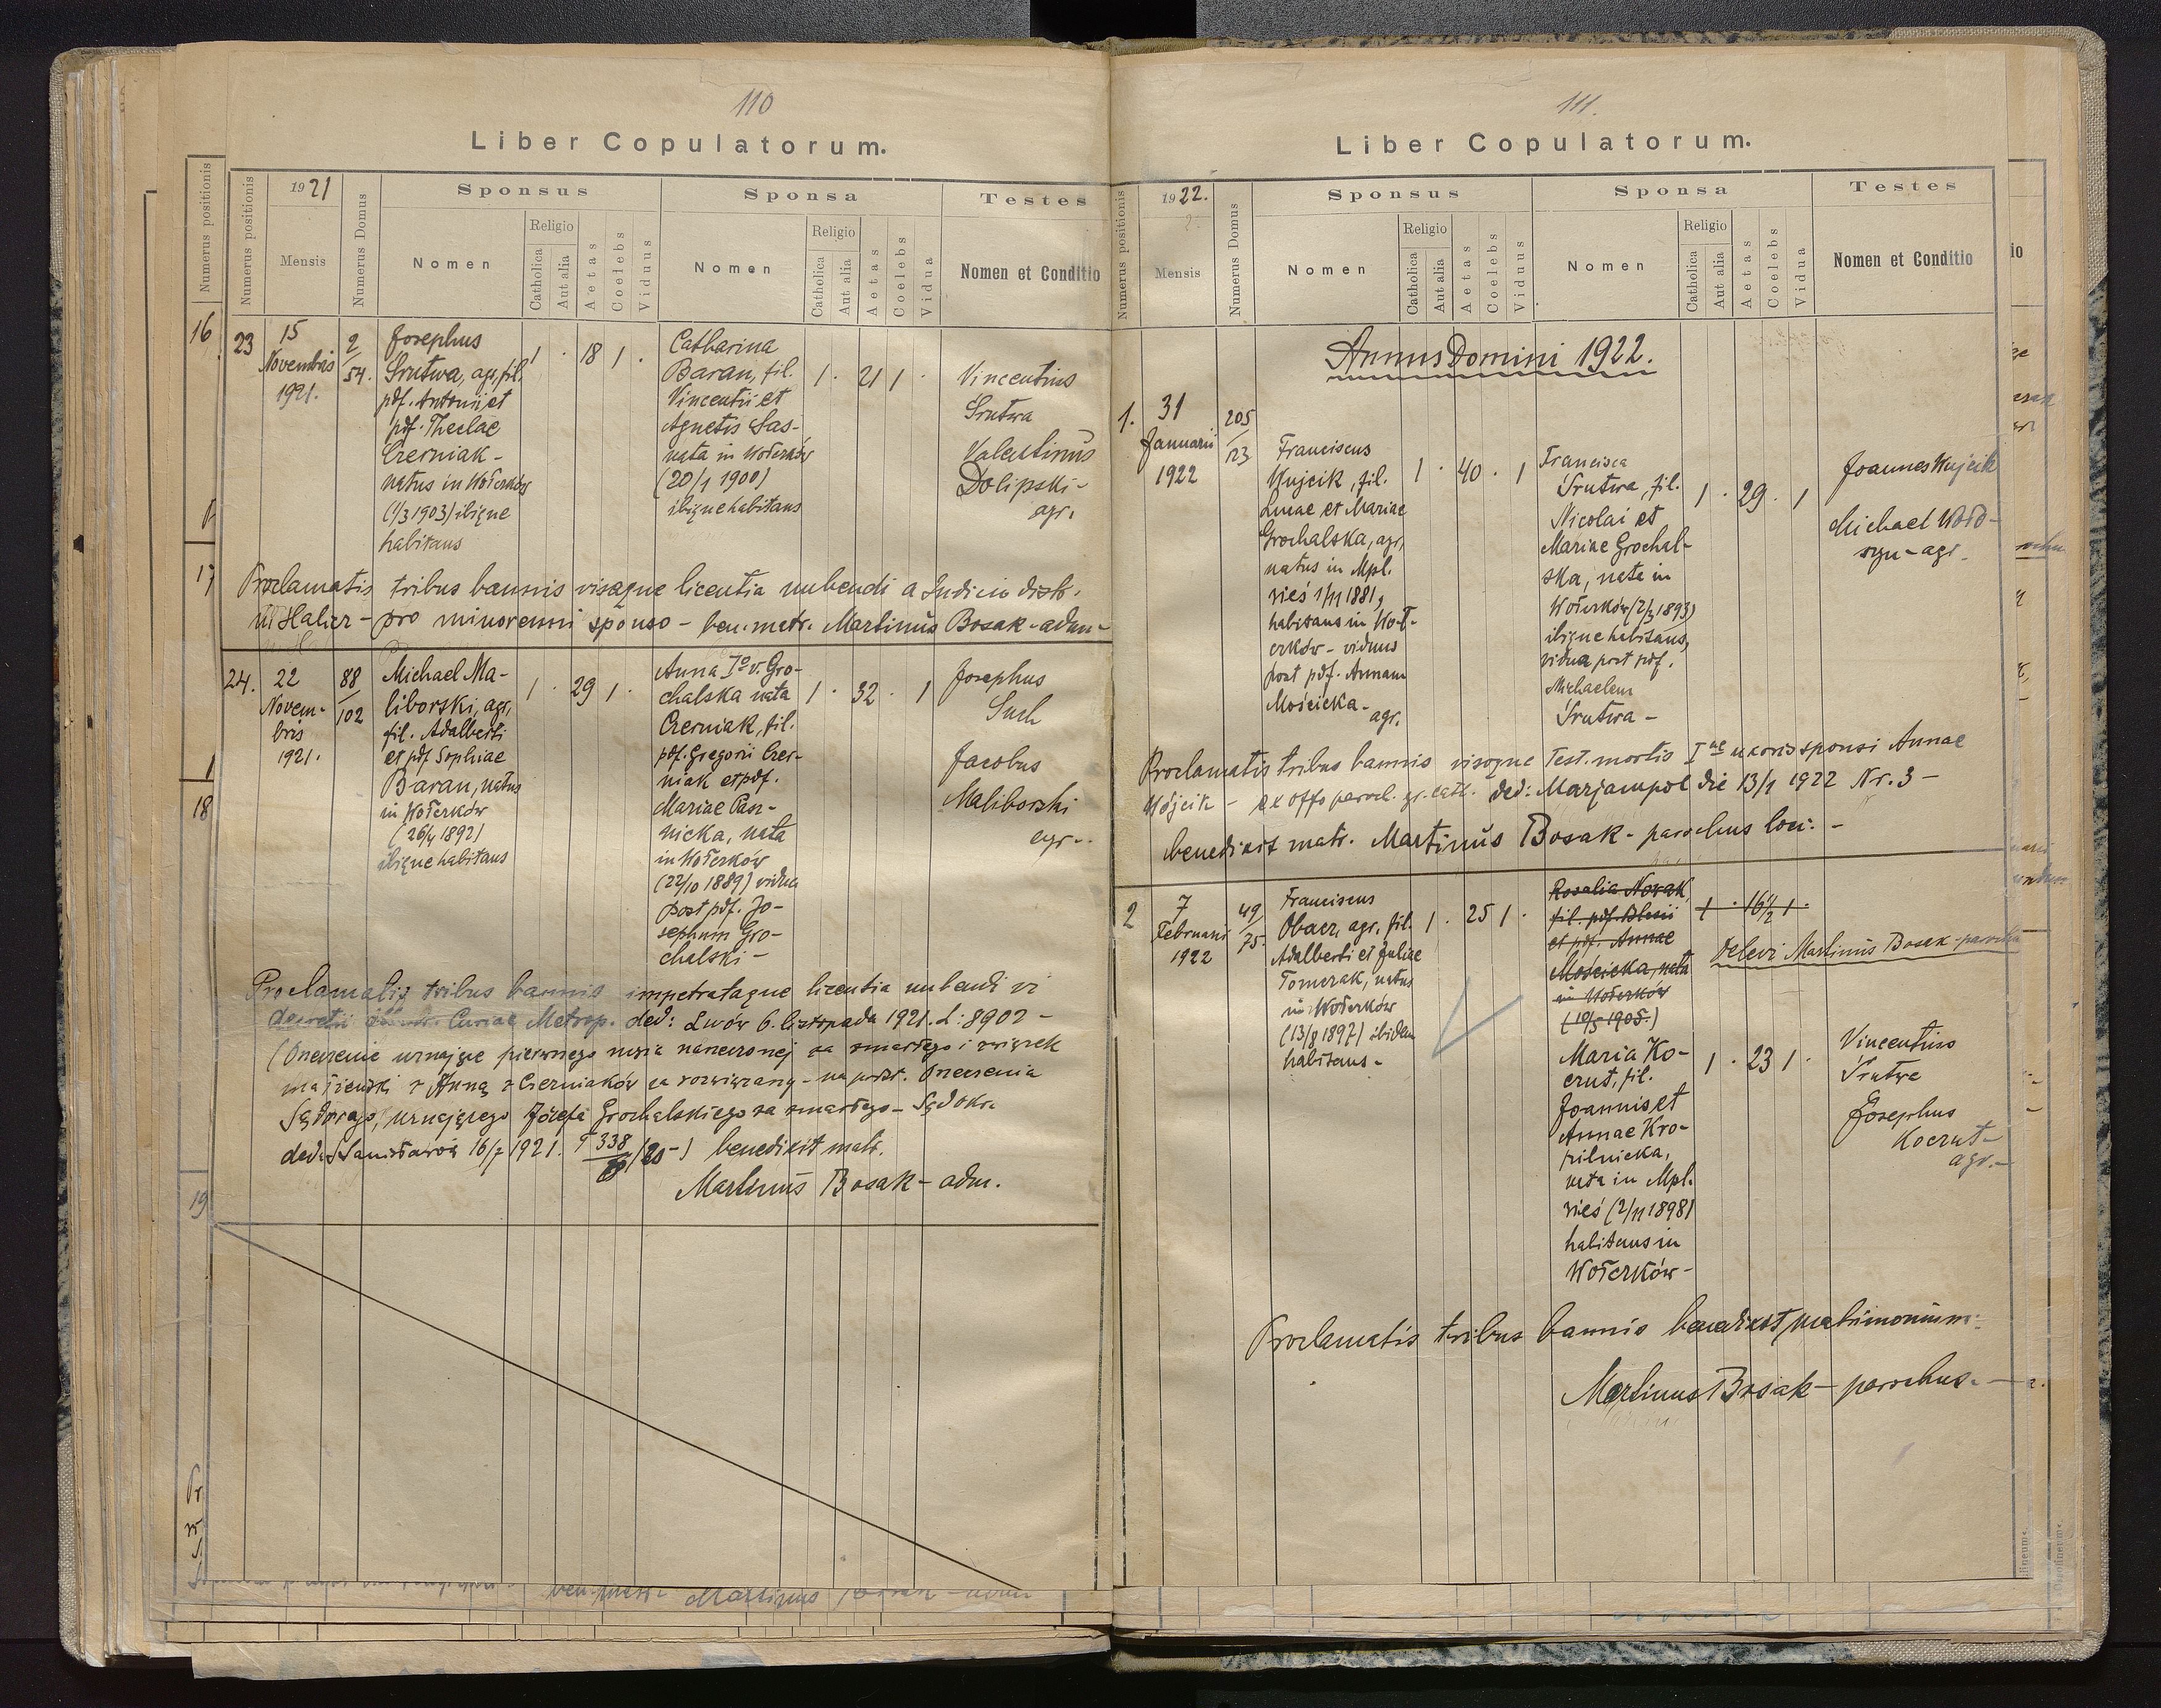 110
Liber Copulatorum.
Numerus positionis
Numerus positionis
1921
Mensis
Numerus Domus
Sponsus
Nomen
Religio
Catholica
Aut alia
Aetas
Coelebs
Viduus
Sponsa
Nomen
Religio
Catholica
Aut alia
Aetas
Coelebs
Vidua
Testes
Nomen et Conditio
16
17
18
19
23
15
Novembris
1921.
2/54.
Josephus
Śrutwa, agr, fil.
pdf. Antonii et
pdf. Theclae
Czerniak -
natus in Wołczków
(1/3 1903) ibique
habitans
1 · 18 1 ·
Catharina
Baran, fil.
Vincentii et
Agnetis Sas-
nata in Wołczków
(20/1 1900)
ibique habitans
1 · 21 1 ·
Vincentius
Śrutwa
Valentinus
Dolipski -
agr.
Proclamatis tribus bannis visaque licentia nubendi a Judicio distr.
in Halicz - pro minorenni sponso - ben. matr. Martinus Bosak - adm -
24.
22
Novem-
bris
1921.
88/102
Michael Ma-
liborski, agr,
fil. Adalberti
et pdf Sophiae
Baran, natus
in Wołczków
(26/4 1892)
ibique habitans
1 · 29 1 ·
Anna Iº v. Gro-
chalska nata
Czerniak, fil.
pdf. Gregorii Czer-
niak et pdf.
Mariae
nicka, nata
in Wołczków
(22/10 1889) vidua
post pdf. Jo-
sephum Gro-
chalski -
1 · 32 · 1
Josephus
Such
Jacobus
Maliborski
agr -.
Proclamatis tribus bannis impetrataque licentia nubendi vi
decreti Curiae Metrop. ded: Lwów 6. listopada 1921. L: 8902 -
(Orzeczenie uznające pierwszego męża narzeczonej za zmarłego i związek
małżeński z Anną z Czerniaków za rozwiązany - na podst. Orzeczenia
Sądowego, uznającego Józefa Grochalskiego za zmarłego - Sąd okr.
ded. Stanisławów 16/7 1921. T 338/20 -) benedixit matr.
Martinus Bosak - adm.
111.
Liber Copulatorum.
Numerus positionis
1922.
Mensis
Numerus Domus
Sponsus
Nomen
Religio
Catholica
Aut alia
Aetas
Coelebs
Viduus
Sponsa
Nomen
Religio
Catholica
Aut alia
Aetas
Coelebs
Vidua
Testes
Nomen et Conditio
Annus Domini 1922.
1.
31
Januarii
1922
205/123
Franciscus
Wujcik, fil.
Lucae et Mariae
Grochalska, agr,
natus in Mpl.
wieś 1/11 1881,
habitans in Woł-
czków - viduus
post pdf. Annam
Mościcka -
agr.
1 · 40 · 1
Francisca
Śrutwa, fil.
Nicolai et
Mariae Grochal-
ska, nata in
Wołczków (2/3 1893)
ibique habitans,
vidua post pdf.
Michaelem
Śrutwa -
1 · 29 · 1
Joannes Wujcik
Michael Woło-
szyn - agr -
Proclamatis tribus bannis visoque Test. mortis Iae uxoris sponsi Annae
Wójcik - ex offo paroch. gr. cath. ded: Marjampol die 13/1 1922 Nr. 3 -
benedixit matr. Martinus Bosak - parochus loci. -
2
7
Februarii
1922
49/75.
Franciscus
Obacz, agr, fil.
Adalberti et Juliae
Tomczak, natus
in Wołczków
(13/8 1897) ibidem
habitans -
1 · 25 1 ·
Rosalia Nowak,
fil. pdf. Blasii
et pdf. Annae
Mościcka, nata
in Wołczków
(10/5 1905.)
1 · 16½ 1 ·
Delevi Martinus Bosak - parochus
Maria Ko-
czut, fil.
Joannis et
Annae Kro-
pilnicka,
nata in Mpl.
wieś (2/11 1898)
habitans in
Wołczków -
1 · 23 1 ·
Vincentius
Śrutwa
Josephus
Koczut -
agr. -
Proclamatis tribus bannis benedixit matrimonium:
Martinus Bosak - parochus. -